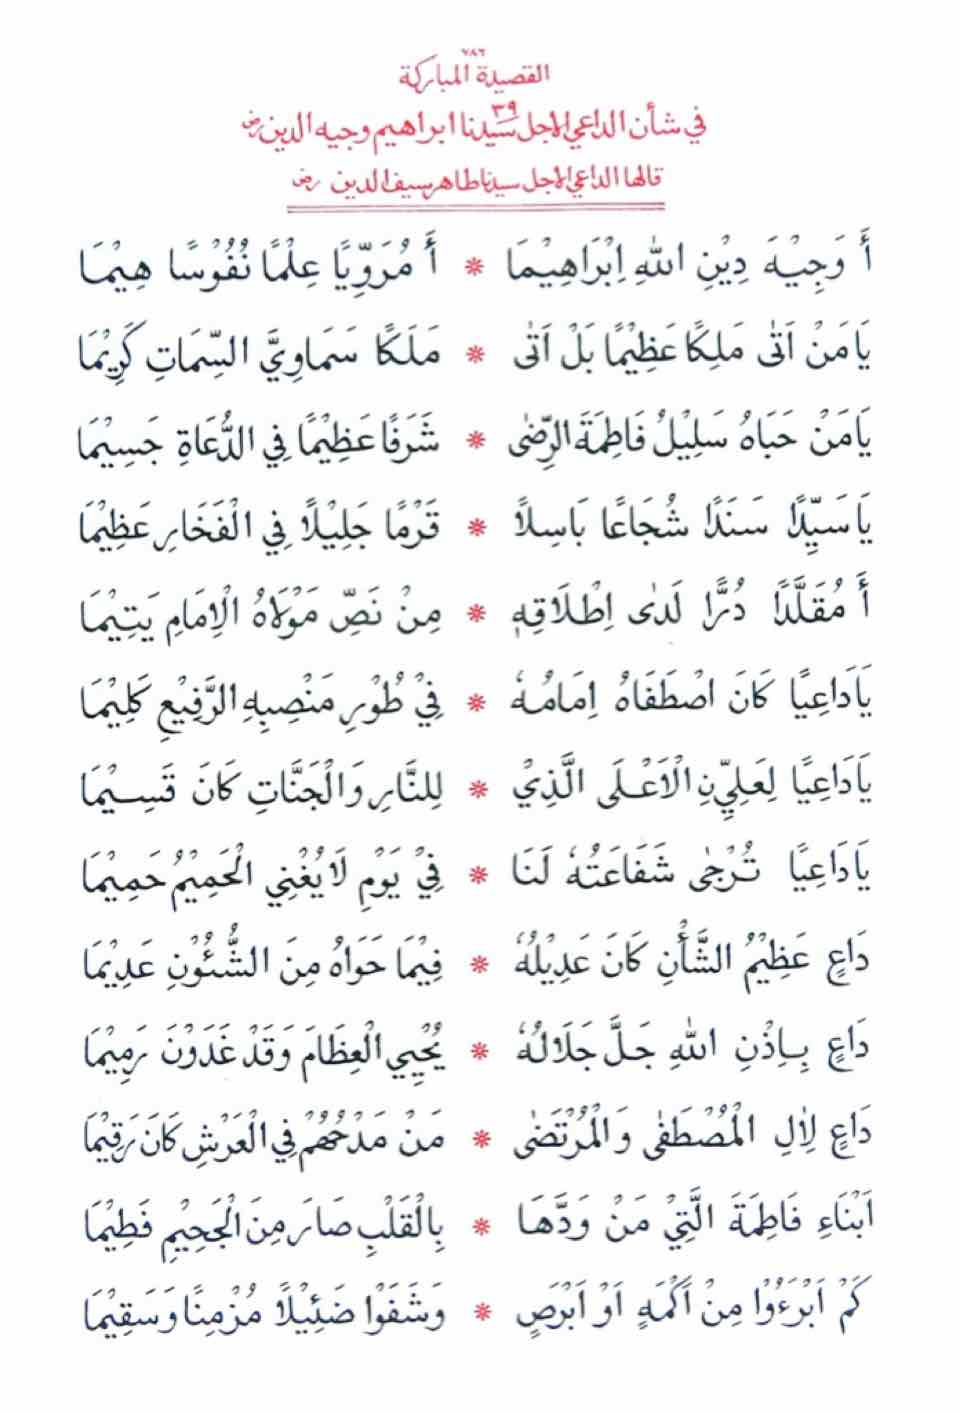 ٧٨٦
القصيدة المباركة
في شأن الداعي الاجل ٣٩ سيدنا ابراهيم وجيه الدين رض
قالها الداعي الاجل سيدنا طاهر سيف الدين رض
أَ وَجِيْهَ دِيْنِ اللهِ اِبْرَاهِيْمَا * أَ مُرَوِّيًا عِلْمًا نُفُوْسًا هِيْمَا
يَا مَنْ اَتٰى مَلِكًا عَظِيْمًا بَلْ اَتٰى * مَلَكًا سَمَاوِيَّ السِّمَاتِ كَرِيْمَا
يَا مَنْ حَبَاهُ سَلِيْلُ فَاطِمَةَ الرِّضٰى * شَرَفًا عَظِيْمًا فِي الدُّعَاةِ جَسِيْمَا
يَا سَيِّدًا سَنَدًا شُجَاعًا بَاسِلًا * قَرْمًا جَلِيْلًا فِي الْفَخَارِ عَظِيْمَا
أَ مُقَلَّدًا دُرًّا لَدٰى اِطْلَاقِهٖ * مِنْ نَصِّ مَوْلَاهُ الْاِمَامِ يَتِيْمَا
يَا دَاعِيًا كَانَ اصْطَفَاهُ اِمَامُهٗ * فِيْ طُوْرِ مَنْصِبِهِ الرَّفِيْعِ كَلِيْمَا
يَا دَاعِيًا لِعَلِيِّنِ الْاَعْلَى الَّذِيْ * لِلنَّارِ وَالْجَنَّاتِ كَانَ قَسِيْمَا
يَا دَاعِيًا تُرْجٰى شَفَاعَتُهٗ لَنَا * فِيْ يَوْمِ لَا يُغْنِي الْحَمِيْمُ حَمِيْمَا
دَاعٍ عَظِيْمُ الشَّأْنِ كَانَ عَدِيْلُهٗ * فِيْمَا حَوَاهُ مِنَ الشُّئُوْنِ عَدِيْمَا
دَاعٍ بِاِذْنِ اللهِ جَلَّ جَلَالُهٗ * يُحْيِي الْعِظَامَ وَقَدْ غَدَوْنَ رَمِيْمَا
دَاعٍ لِاٰلِ الْمُصْطَفٰى وَالْمُرْتَضٰى * مَنْ مَدْحُهُمْ فِي الْعَرْشِ كَانَ رَقِيْمَا
اَبْنَاءِ فَاطِمَةَ الَّتِيْ مَنْ وَدَّهَا * بِالْقَلْبِ صَارَ مِنَ الْجَحِيْمِ فَطِيْمَا
كَمْ اَبْرَءُوْا مِنْ اَكْمَهٍ اَوْ اَبْرَصٍ * وَشَفَوْا ضَئِيْلًا مُزْمِنًا وَسَقِيْمَا